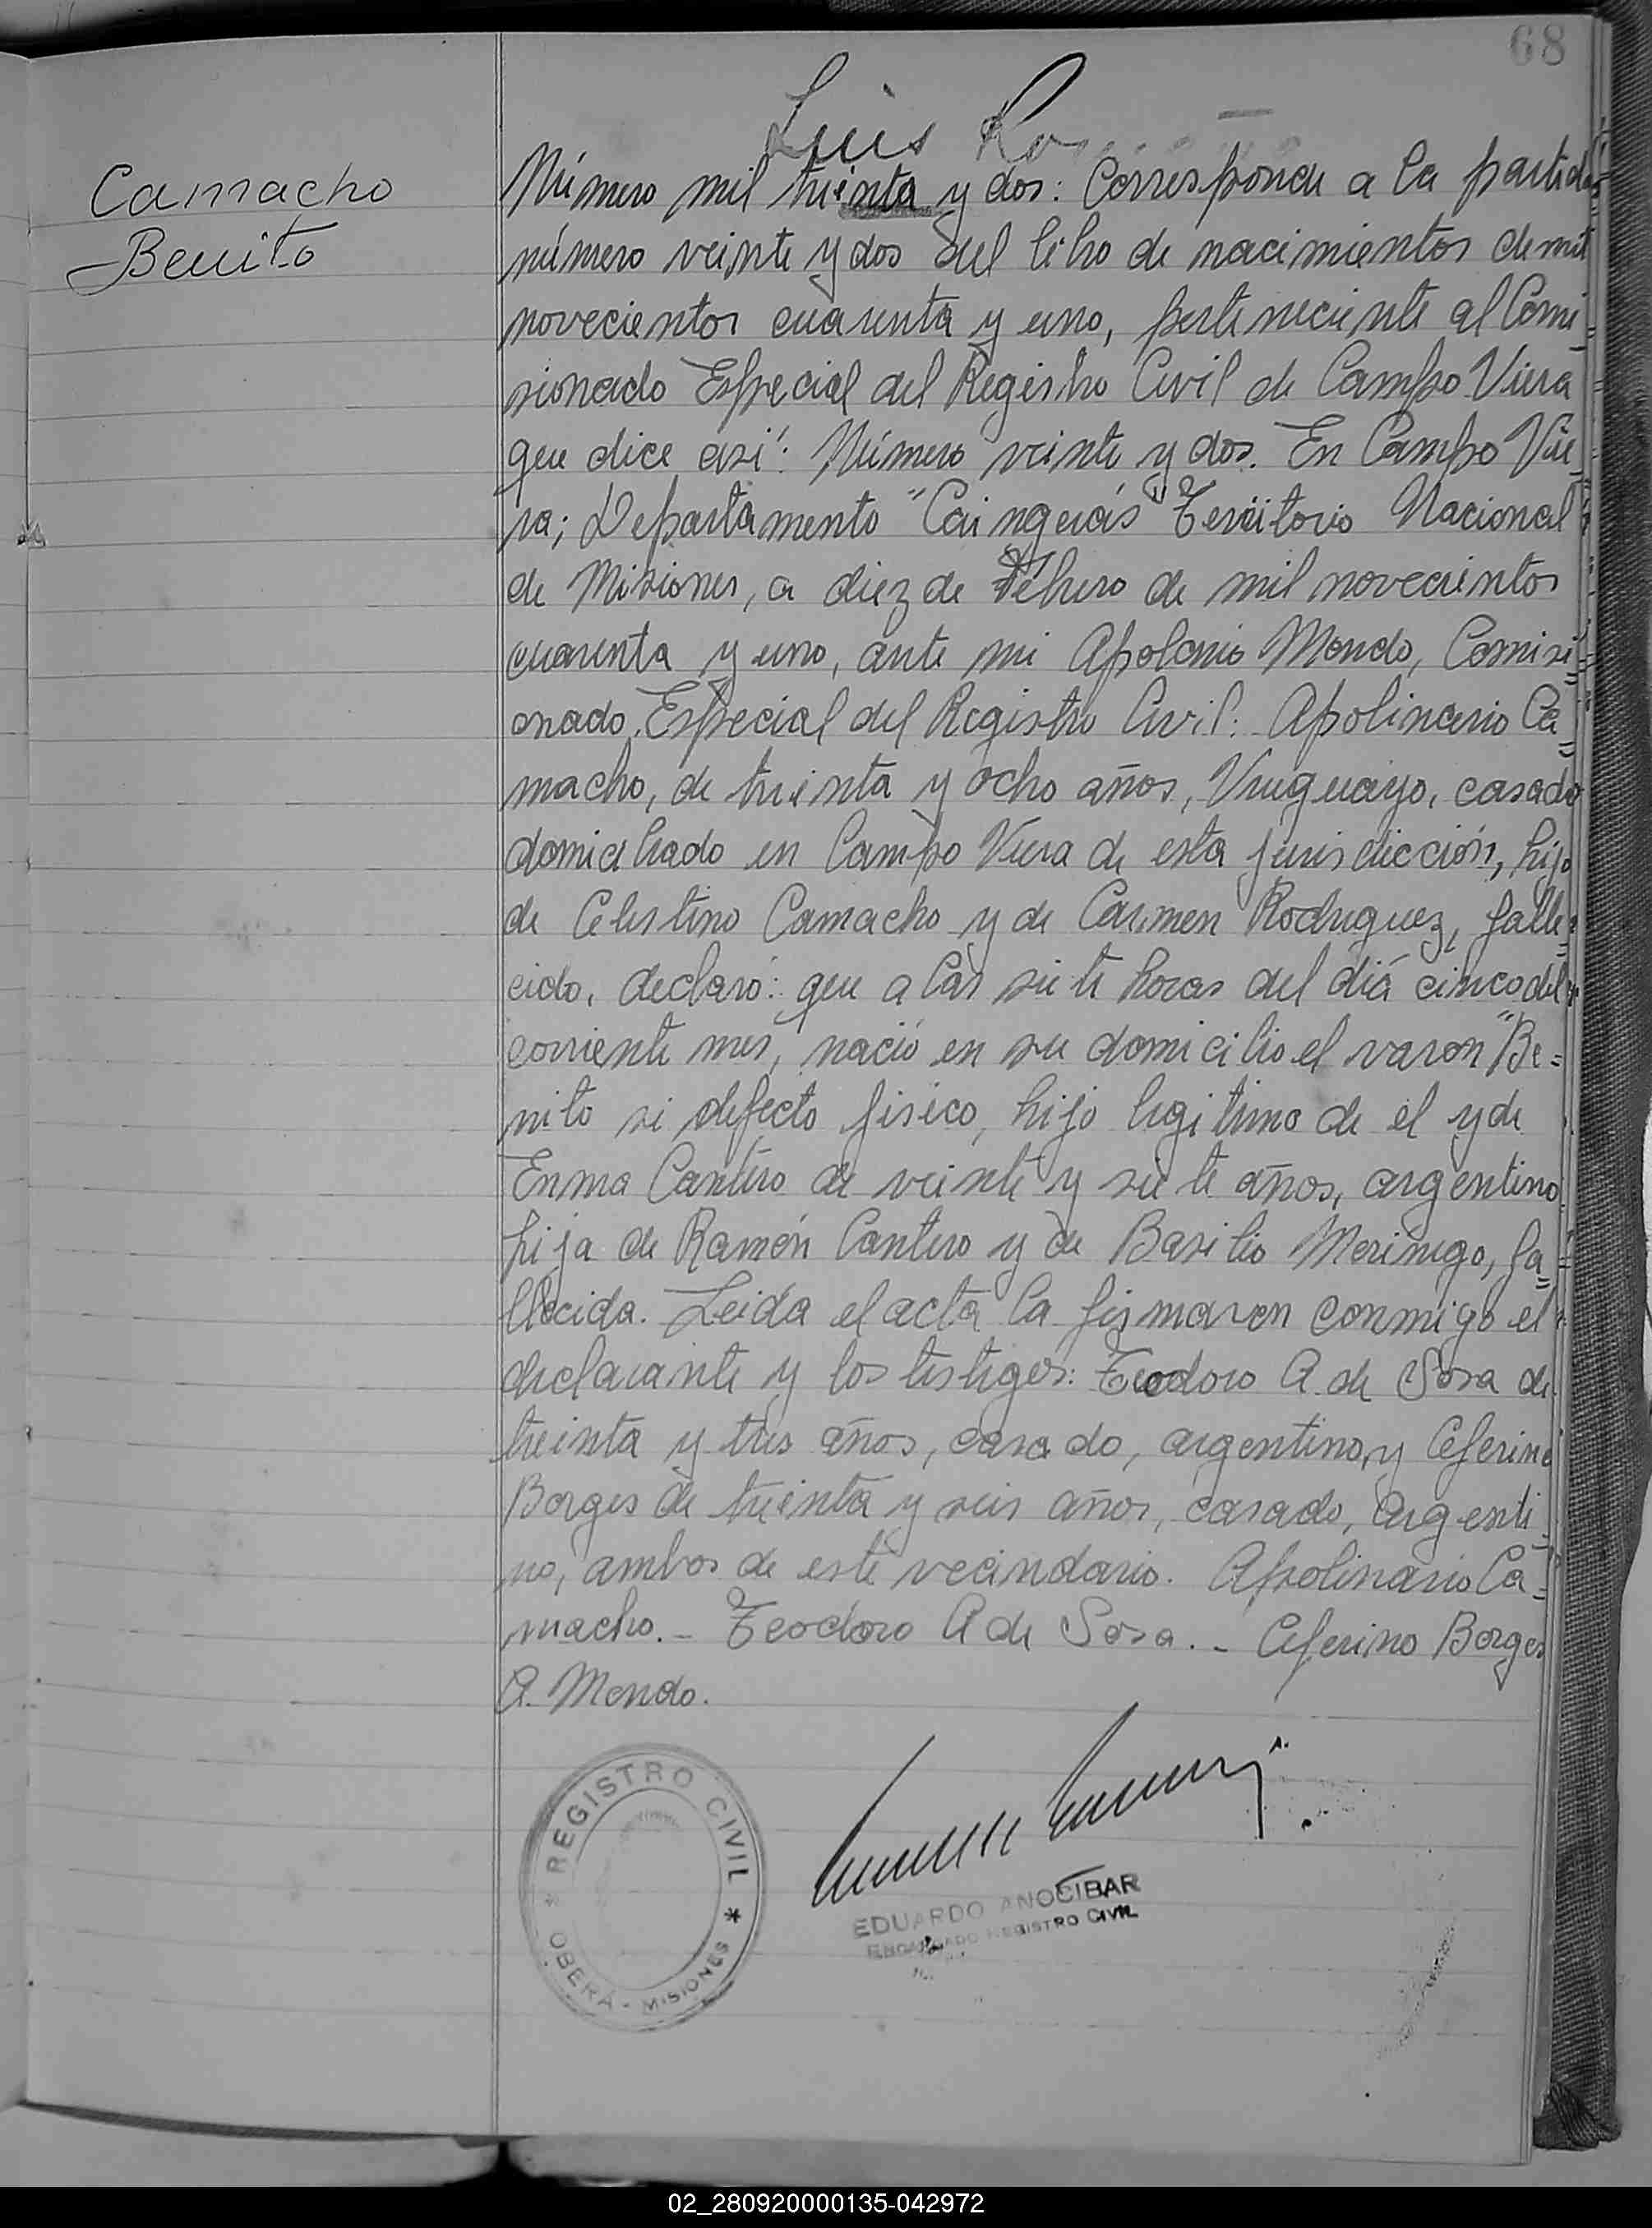 68
Luis
Camacho
Benito
Número mil treinta y dos: Corresponde a la partida
número veinte y dos del libro de nacimientos de mil
novecientos cuarenta y uno, perteneciente al Comi
sionado Especial del Registro Civil de Campo Viera
que dice así: Número veinte y dos. En Campo Vie
ra; Departamento "Cainguás" Territorio Nacional
de Misiones, a diez de Febrero de mil novecientos
cuarenta y uno, ante mi Apolonio Mondo, Comisi
onado Especial del Registro Civil: Apolinario Ca=
macho, de treinta y ocho años, Uruguayo, casado
domiciliado en Campo Viera de esta jurisdicción, hijo
de Celestino Camacho y de Carmen Rodriguez, falle=
cido, declaró: que a las siete horas del diá cinco del
corriente mes, nació en su domicilio el varon "Be=
nito si defecto fisico, hijo legitimo de el y de
Enma Cantero de veinte y siete años, argentino
hija de Ramón Cantero y de Basilio Merinigo, fa=
llecida. Leida el acta la firmaron conmigo el
declarante y los testigos: Teodoro A. de Sosa de
treinta y tres años, casado, argentino, y Ceferino
Borges de treinta y seis años, casado, argenti
no, ambos de este vecindario. Apolinario Ca=
macho.- Teodoro A de Sosa.- Ceferino Borges
A. Mondo.
* REGISTRO CIVIL *
OBERÁ - MISIONES
EDUARDO ANOCIBAR
ENCARGADO REGISTRO CIVIL
02_280920000135-042972